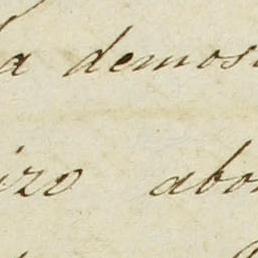 a demos
izo abon